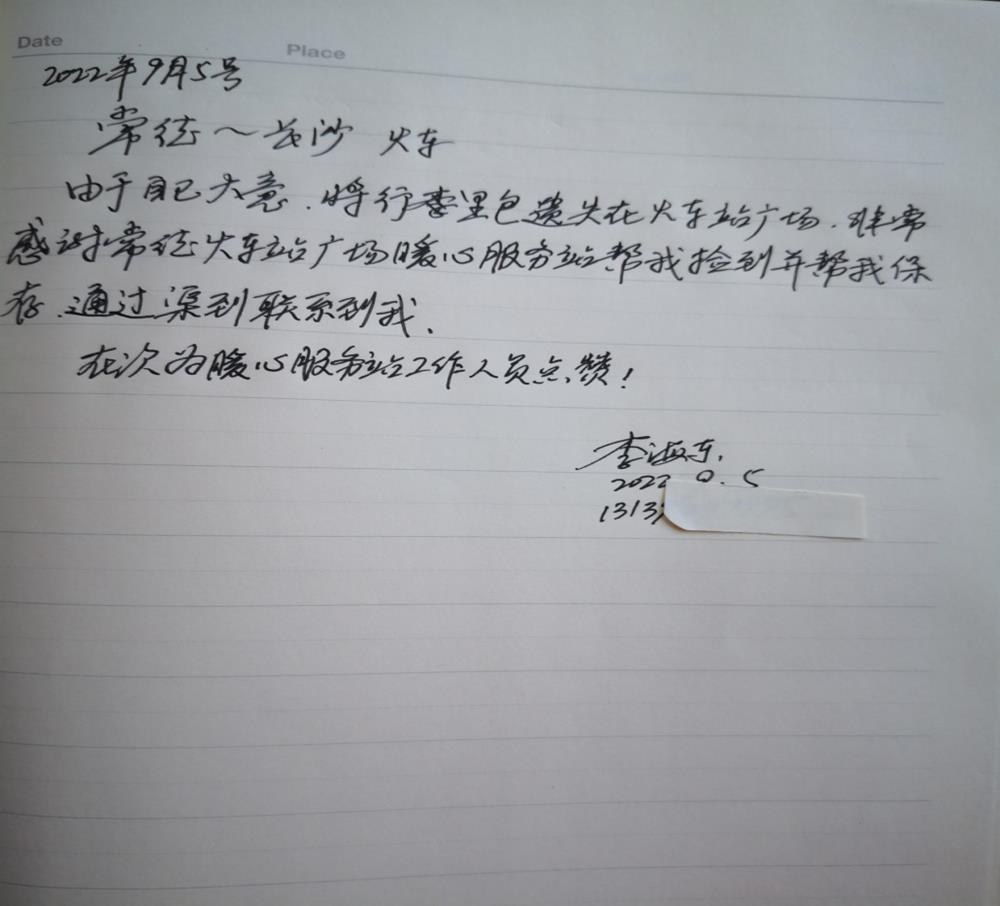 Date Place
2022年9月5号
常德~长沙 火车
由于自己大意.将行李里包遗失在火车站广场.非常
感谢常德火车站广场暖心服务站帮我捡到并帮我保
存.通过渠到联系到我.
在次为暖心服务站工作人员点赞!
李海东.
2022 9.5
1313